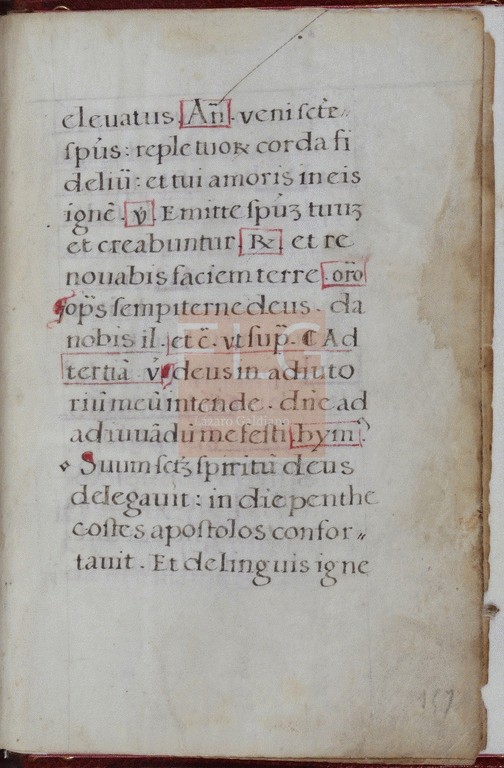 eleuatus. Añ. veni sct̃e
spũs: reple tuoꝝ corda fi
deliũ: et tui amoris in eis
ignẽ. ꝟ. Emitte spũꝫ tuuꝫ
et creabuntur. ℟. et re
nouabis faciem terre. or̃o
op̃s sempiterne deus. da
nobis il. et c̃. vt sup̃. ¶ Ad
tertiã ꝟ. deus in adiuto
riũ meũ intende. dñe ad
adiuuãdũ me festi. hym̃.
Suum sctꝫ spiritũ deus
delegauit: in die penthe
costes apostolos confor-
tauit. Et de linguis igne
FLG
Lázaro Galdiano
157